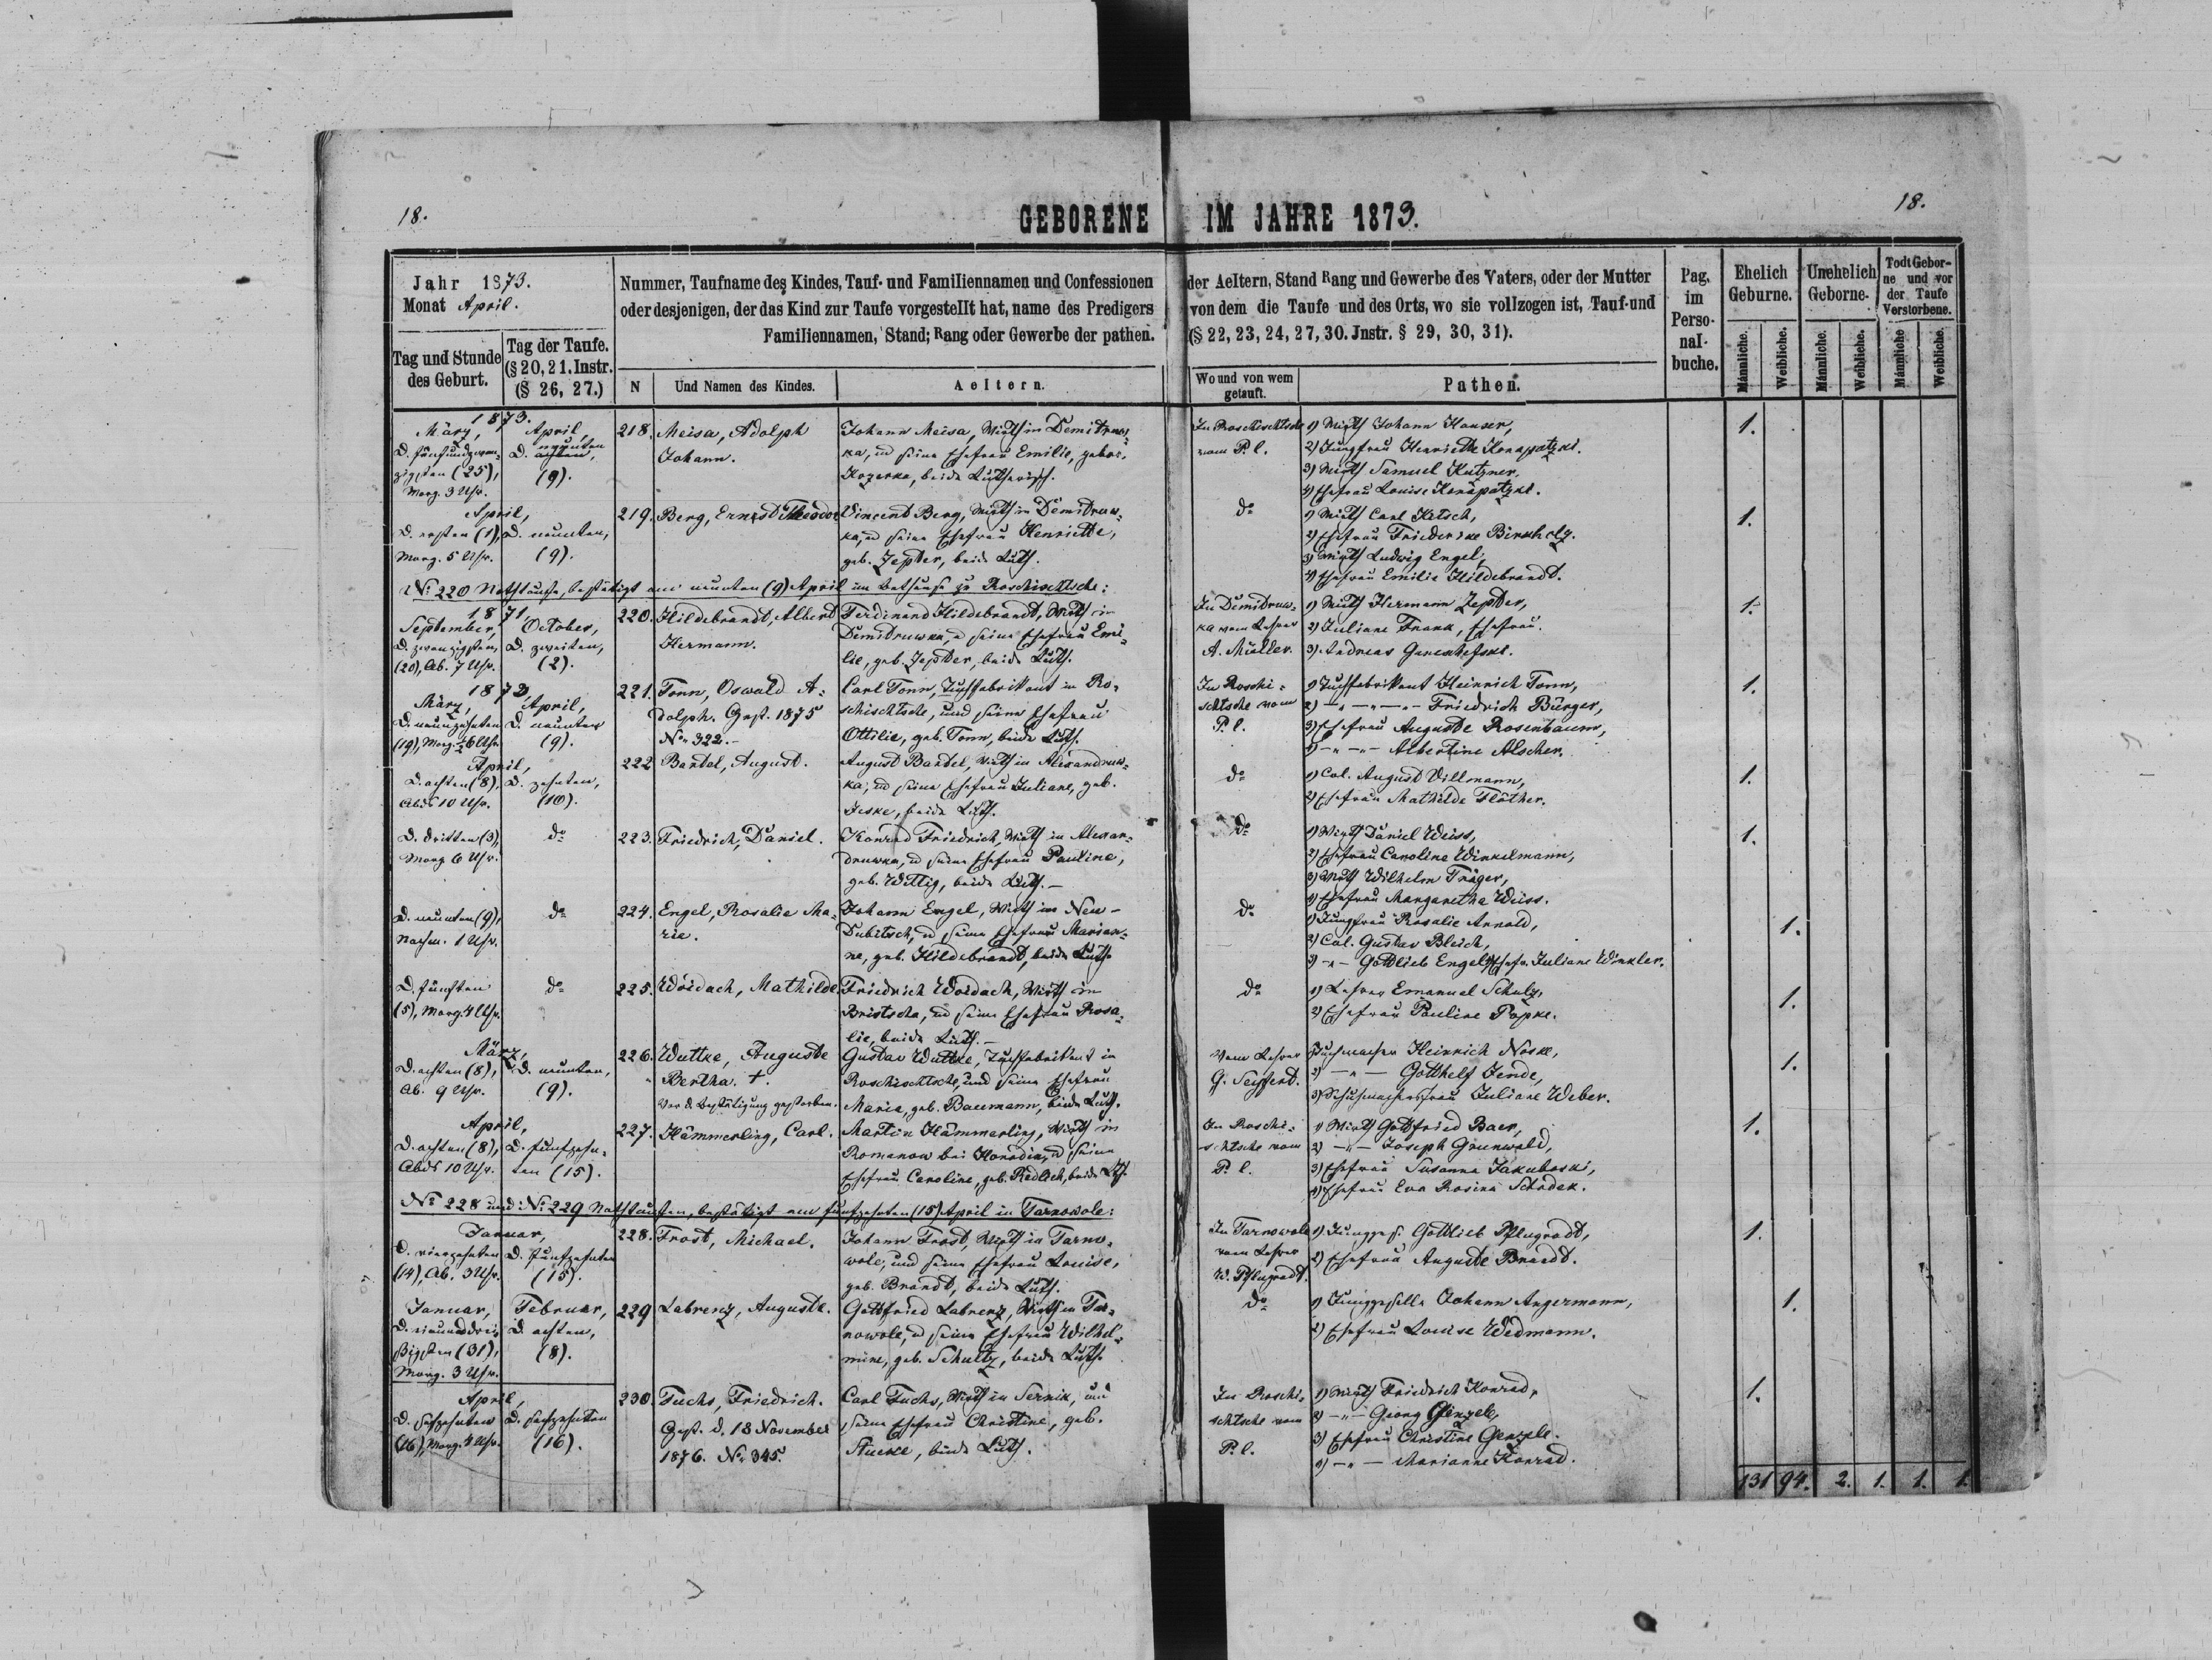 18.
GEBORENE IM JAHRE 1873.
18.
Jahr 1873.
Monat April.
Tag und Stunde
des Geburt.
Tag der Taufe.
(§ 20, 21. Instr.
(§ 26, 27.)
Nummer, Taufname des Kindes, Tauf- und Familiennamen und Confessionen
oder desjenigen, der das Kind zur Taufe vorgestellt hat, name des Predigers
Familiennamen, Stand; Rang oder Gewerbe der pathen.
N
Und Namen des Kindes.
Aeltern.
der Aeltern, Stand Rang und Gewerbe des Vaters, oder der Mutter
von dem die Taufe und des Orts, wo sie vollzogen ist, Tauf-und
(§ 22, 23, 24, 27, 30. Jnstr. § 29, 30, 31).
Wo und von wem
getauft.
Pathen.
Pag.
im
Perso-
nal-
buche.
Ehelich
Geburne.
Unehelich
Geborne.
Todt Gebor-
ne und vor
der Taufe
Verstorbene.
Männliche.
Weibliche.
Männliche.
Weibliche.
Männliche
Weibliche.
1873.
März,
D. fünfundzwan-
zigsten (25),
Morg. 3 Uhr.
April,
D. neunten,
(9).
218.
Meisa, Adolph
Johann.
Johann Meisa, Wirth in Demitruw-
ka, und seine Ehefrau Emilie, gebor.
beide Lutherisch.
In Roschischtsche
vom P. l.
1) Wirth Johann Hauser,
2) Jungfrau Henriette Konapatzki.
3) Wirth Samuel Kutzner,
4) Ehefrau Louise Konapatzki.
1.
April,
D. ersten (1),
Morg. 5 Uhr.
D. neunten,
(9).
219.
Berg, Ernst Theodor
Vincent Berg, Wirth in Demidruw-
ka, u seine Ehefrau Henriette,
geb. Zepter, beide Luth.
do
1) Wirth Carl Ketsch,
2) Ehefrau Friederike Birkholz.
3) Wirth Ludwig Engel,
4) Ehefrau Emilie Hildebrandt.
1.
No 220 Nothtaufe, bestätigt am neunten (9) April im Bethause zu Roschischtsche:
1871,
September,
D. zwanzigsten,
(20), Ab. 7 Uhr.
October,
D. zweiten,
(2).
220.
Hildebrandt, Albert
Hermann.
Ferdinand Hildebrandt, Wirth in
Demidruwka, u seine Ehefrau Emi-
lie, geb Zepter, beide Luth.
In Demidruw-
ka vom Lehrer
A. Müller.
1) Wirth Hermann Zepter,
2) Juliane Frank, Ehefrau.
3) Andreas
1.
1873,
März,
D. neunzehnten
(19), Morg. ½6 Uhr.
April,
D. neunten
(9).
221.
Tonn, Oswald A-
dolph. Gest. 1875
No 322.-
Carl Tonn, Tuchfabrikant in Ro-
schischtsche, und seine Ehefrau
Ottilie, geb. Tonn, beide Luth.
In Roschi-
schtsche vom
P. l.
1) Tuchfabrikant Heinrich Tonn,
2) -"-"- Friedrich Bürger,
3) Ehefrau Auguste Rosenbaum,
4) -"-"- Albertine Alscher.
1.
April,
D. achten (8),
Abds 10 Uhr.
D. zehnten,
(10).
222
Bartel, August.
August Bartel, Wirth in Alexandruw-
ka, u seine Ehefrau Juliane, geb.
Jeske, beide Luth.
do
1) Col. August Villmann,
2) Ehefrau Mathilde Flöther.
1.
D. dritten (3),
Morg 6 Uhr.
do
223.
Friedrich, Daniel.
Konrad Friedrich, Wirth in Alexan-
druwka, u seine Ehefrau Pauline,
geb. Wittig, beide Luth.-
do
1) Wirth Daniel Weiss,
2) Ehefrau Caroline Winkelmann,
3) Wirth Wilhelm Träger,
4) Ehefrau Margaretha Weiss.
1.
D. neunten (9),
Nachm. 1 Uhr.
do
224.
Engel, Rosalie Ma-
rie.
Johann Engel, Wirth in Neu-
Dubitsch, u seine Ehefrau Marian-
ne, geb. Hildebrandt, beide Luth.
do
1) Jungfrau Rosalie Arnold,
2) Col. Gustav Bleich,
3) -"- Gottlieb Engel, 4) Ehefr. Juliane Winkler.
1.
D. fünften
(5), Morg. 4 Uhr.
do
225.
Woidach, Mathilde.
Friedrich Woidach, Wirth in
Bristscha, u seine Ehefrau Rosa-
lie, beide Luth.-
do
1) Lehrer Emanuel Schulz,
2) Ehefrau Pauline Papke.
1.
März,
D. achten (8),
Ab. 9 Uhr.
D. neunten,
(9).
226.
Wuttke, Auguste
Bertha. †.
Vor d. Bestätigung gestorben.
Gustav Wuttke, Tuchfabrikant in
Roschischtsche, und seine Ehefrau
Maria, geb. Baumann, beide Luth.
Vom Lehrer
G. Seyffert.
1) Tuchmacher Heinrich Noske,
2) -"- Gotthelf Jende,
3) Schuhmachersfrau Juliane Weber.
1.
April,
D. achten (8),
Abds 10 Uhr.
D. funfzehn-
ten (15).
227.
Hämmerling, Carl.
Martin Hämmerling, Wirth in
Romanow bei u seine
Ehefrau Caroline, geb. Redlich, beide Luth.
In Roschi-
schtsche vom
P. l.
1) Wirth Gottfried Baer,
2) -"- Joseph Grunwald,
3) Ehefrau Susanna Jakuboski,
4) Ehefrau Eva Rosina Schadek.
1.
No 228 und No 229 Nothtaufen, bestätigt am funfzehnten (15) April in Tarnowole:
Januar,
D. vierzehnten
(14), Ab. 3 Uhr.
D. funfzehnten
(15).
228.
Frost, Michael.
Johann Frost, Wirth in Tarno-
wole, und seine Ehefrau Louise,
geb. Brandt, beide Luth.
In Tarnowole
vom Lehrer
W. Pflugradt.
1) Jungges. Gottlieb Pflugradt,
2) Ehefrau Auguste Brandt.
1.
Januar,
D. einunddrei-
ßigsten (31),
Morg. 3 Uhr.
Februar,
D. achten,
(8).
229
Labrenz, Auguste.
Gottfried Labrenz, Wirth in Tar-
nowole, u seine Ehefrau Wilhel-
mine, geb. Schultz, beide Luth.
do
1) Junggeselle Johann Angermann,
2) Ehefrau Louise Wedmann.
1.
April,
D. sechzehnten
(16), Morg. 4 Uhr.
D. sechzehnten
(16).
230.
Fuchs, Friedrich.
Gest. d. 18 November
1876. No 345.
Carl Fuchs, Wirth in Sernik, und
seine Ehefrau Christine, geb.
Stucke, beide Luth.
In Roschi-
schtsche vom
P. l.
1) Wirth Friedrich Konrad,
2) -"- Georg Genzele,
3) Ehefrau Christine Genzele.
4) -"- Marianne Konrad.
1.
131 94. 2. 1. 1. 1.